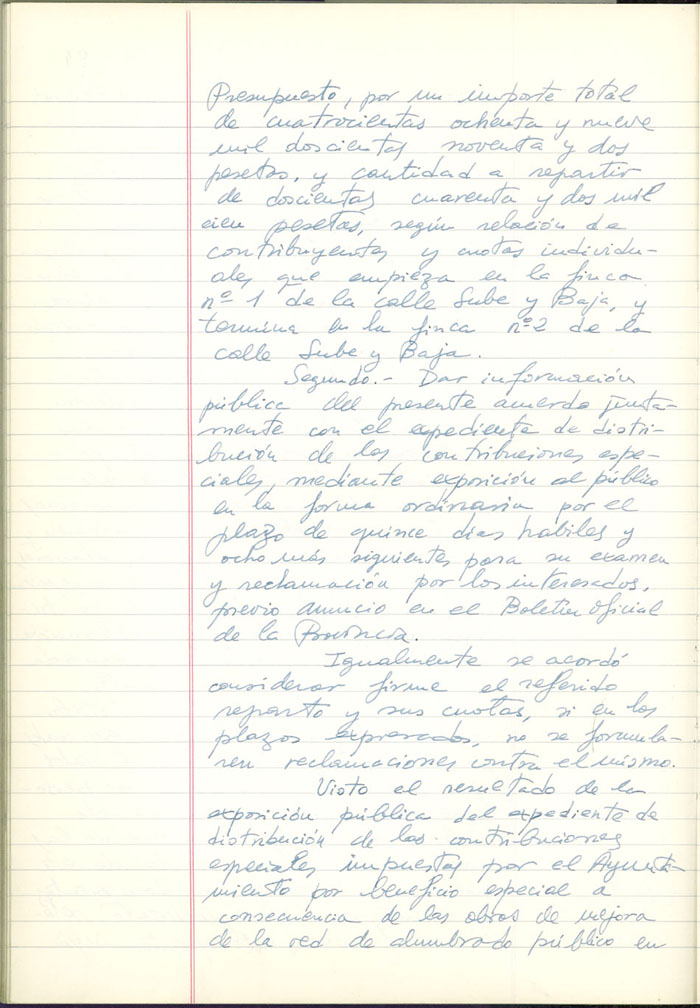 Presupuesto, por un importe total
de cuatrocientas ochenta y nueve
mil doscientas noventa y dos
pesetas, y cantidad a repartir
de doscientas cuarenta y dos mil
cien pesetas, según relación de
contribuyentes y cuotas individu-
ales que empieza en la finca
nº 1 de la calle Sube y Baja, y
termina en la finca nº 2 de la
calle Sube y Baja.
Segundo.- Dar información
pública del presente acuerdo junta-
mente con el expediente de distri-
bución de las contribuciones espe-
ciales, mediante exposición al público
en la forma ordinaria por el
plazo de quince dias habiles y
ocho más siguientes para su examen
y reclamación por los interesados,
previo anuncio en el Boletin Oficial
de la Provincia.
Igualmente se acordó
considerar firme el referido
reparto y sus cuotas, si en los
plazos expresados, no se formula-
ren reclamaciones contra el mismo.
Visto el resultado de la
exposición pública del expediente de
distribución de las contribuciones
especiales impuestas por el Ayunta-
miento por beneficio especial a
consecuencia de las obras de mejora
de la red de alumbrado público en